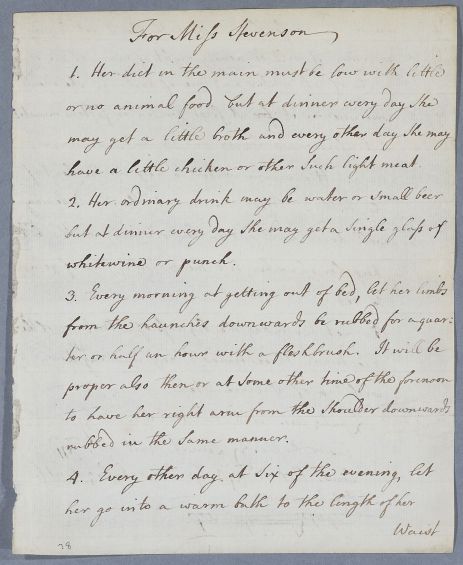 For Miss Stevenson
1. Her diet in the main must be low with little
or no animal food. but at dinner every day she
may get a little broth and every other day she may
have a little chicken or other such light meat.
2. Her ordinary drink may be water or small beer
but at dinner every day she may get a single glass of
whitewine or punch.
3. Every morning at getting out of bed, let her limbs
from the haunches downwards be rubbed for a quar=
ter or half an hour with a fleshbrush. It will be
proper also then or at some other time of the forenoon
to have her right arm from the shoulder downwards
rubbed in the same manner.
4. Every other day at six of the evening, let
her go into a warm bath to the length of her
Waist
38